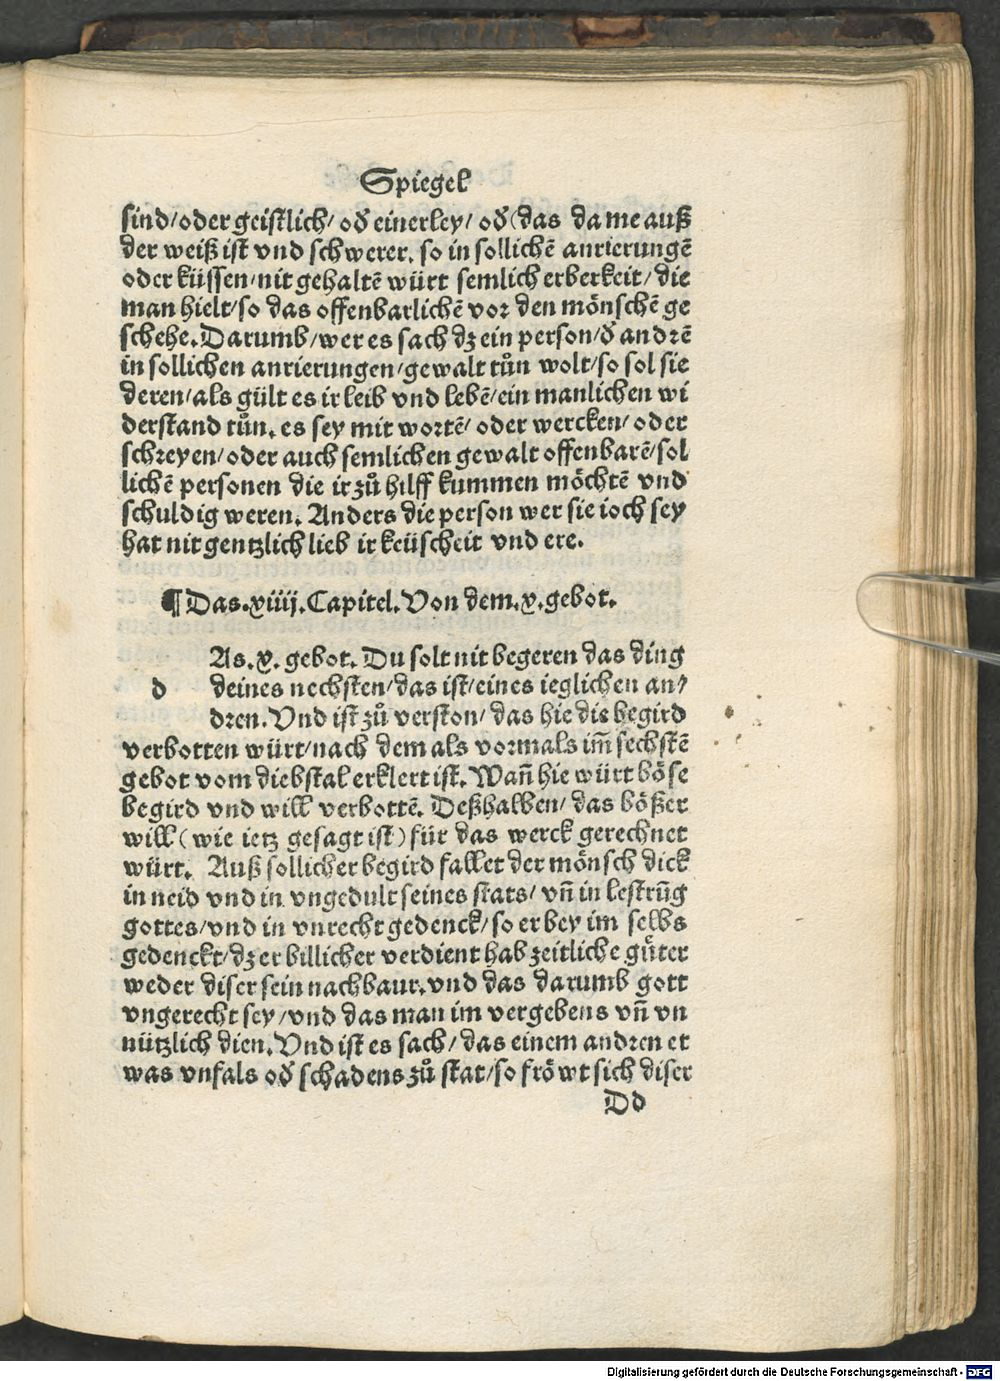 Spiegel
sind/oder geistlich/ oď einerley/ oď (das da me auß
der weiß ist vnd schwerer. so in sollichē anrierungē
oder küssen/nit gehaltē würt semlich erberkeit/ die
man hielt/so das offenbarlichē vor den mönschē ge
schehe. Darumb/wer es sach dz ein person/ď andrē
in sollichen anrierungen/gewalt tůn wolt/so sol sie
deren/als gült es ir leib vnd lebē/ein manlichen wi
derstand tůn. es sey mit wortē/ oder wercken/ oder
schreyen/oder auch semlichen gewalt offenbarē/sol
lichē personen die ir zů hilff kummen möchtē vnd
schuldig weren. Anders die person wer sie ioch sey
hat nit gentzlich lieb ir keüscheit vnd ere.
¶ Das.xiiij.Capitel.Von dem.x.gebot.
As.x. gebot. Du solt nit begeren das ding
d deines nechsten/das ist/eines ieglichen an/
dren.Vnd ist zů verston/ das hie die begird
verbotten würt/nach dem als vormals im̄ sechstē
gebot vom diebstal erklert ist. Wañ hie würt böse
begird vnd will verbottē. Deßhalben/ das bößer
will (wie ietz gesagt ist) für das werck gerechnet
würt. Auß sollicher begird fallet der mönsch dick
in neid vnd in vngedult seines stats/ vñ in lestrūg
gottes/vnd in vnrecht gedenck/so er bey im selbs
gedenckt/dz er billicher verdient hab zeitliche gůter
weder diser sein nachbaur.vnd das darumb gott
vngerecht sey/vnd das man im vergebens vñ vn
nützlich dien.Vnd ist es sach/das einem andren et
was vnfals oď schadens zů stat/so fröwt sich diser
Dd
Digitalisierung gefördert durch die Deutsche Forschungsgemeinschaft - DFG